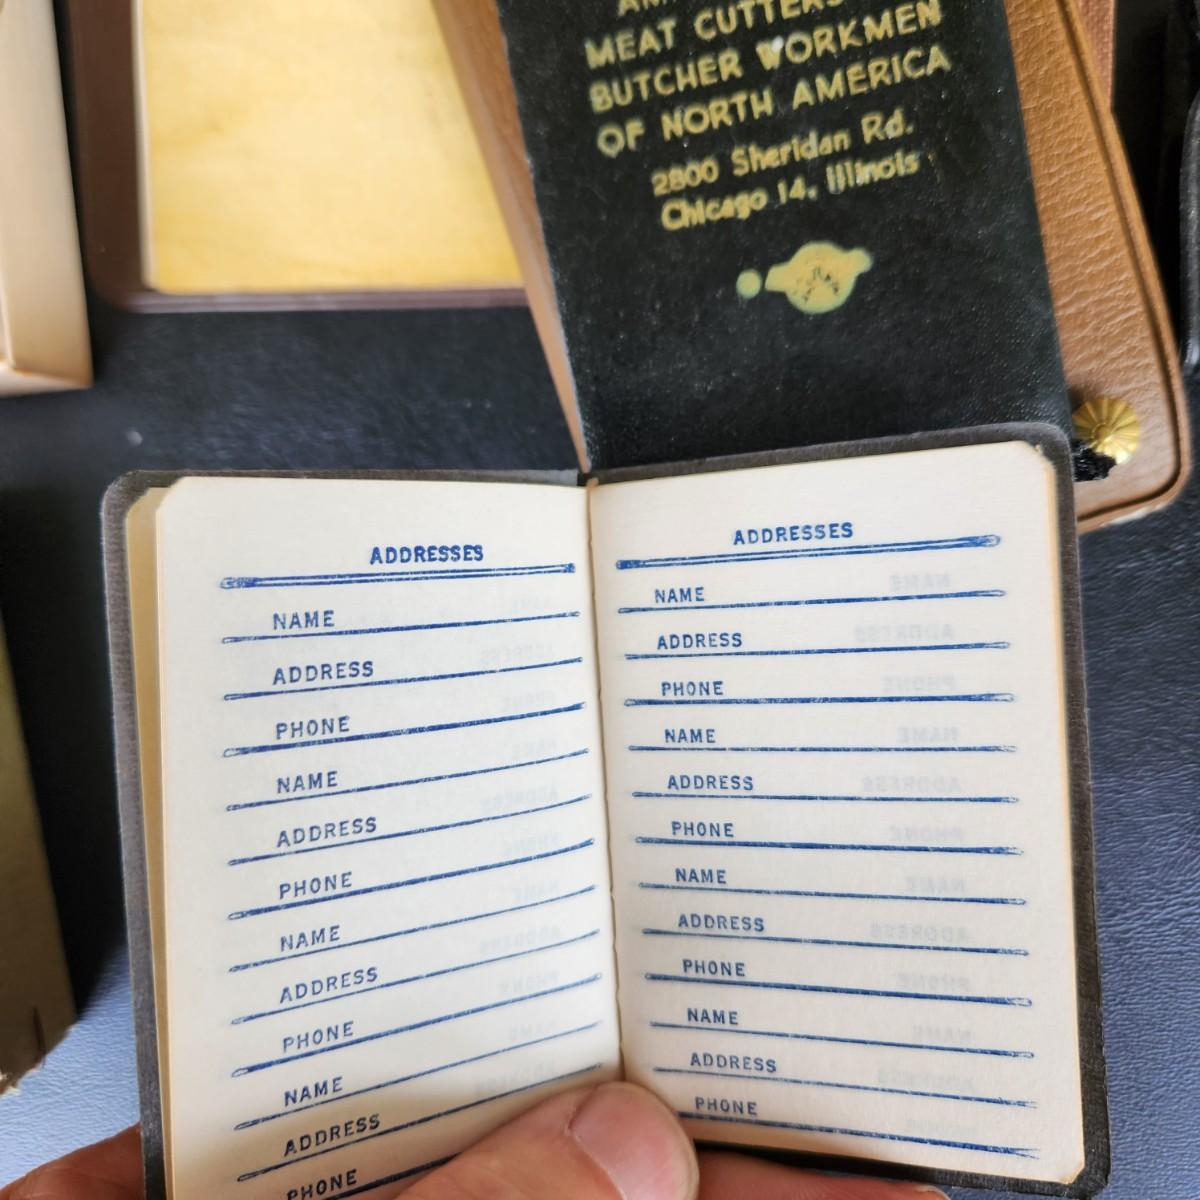 MEAT CUTTERS
BUTCHER WORKMEN
OF NORTH AMERICA
2800 Sheridan Rd.
Chicago 14, Illinois
ADDRESSES
NAME
ADDRESS
PHONE
NAME
ADDRESS
PHONE
NAME
ADDRESS
PHONE
NAME
ADDRESS
PHONE
ADDRESSES
NAME
ADDRESS
PHONE
NAME
ADDRESS
PHONE
NAME
ADDRESS
PHONE
NAME
ADDRESS
PHONE